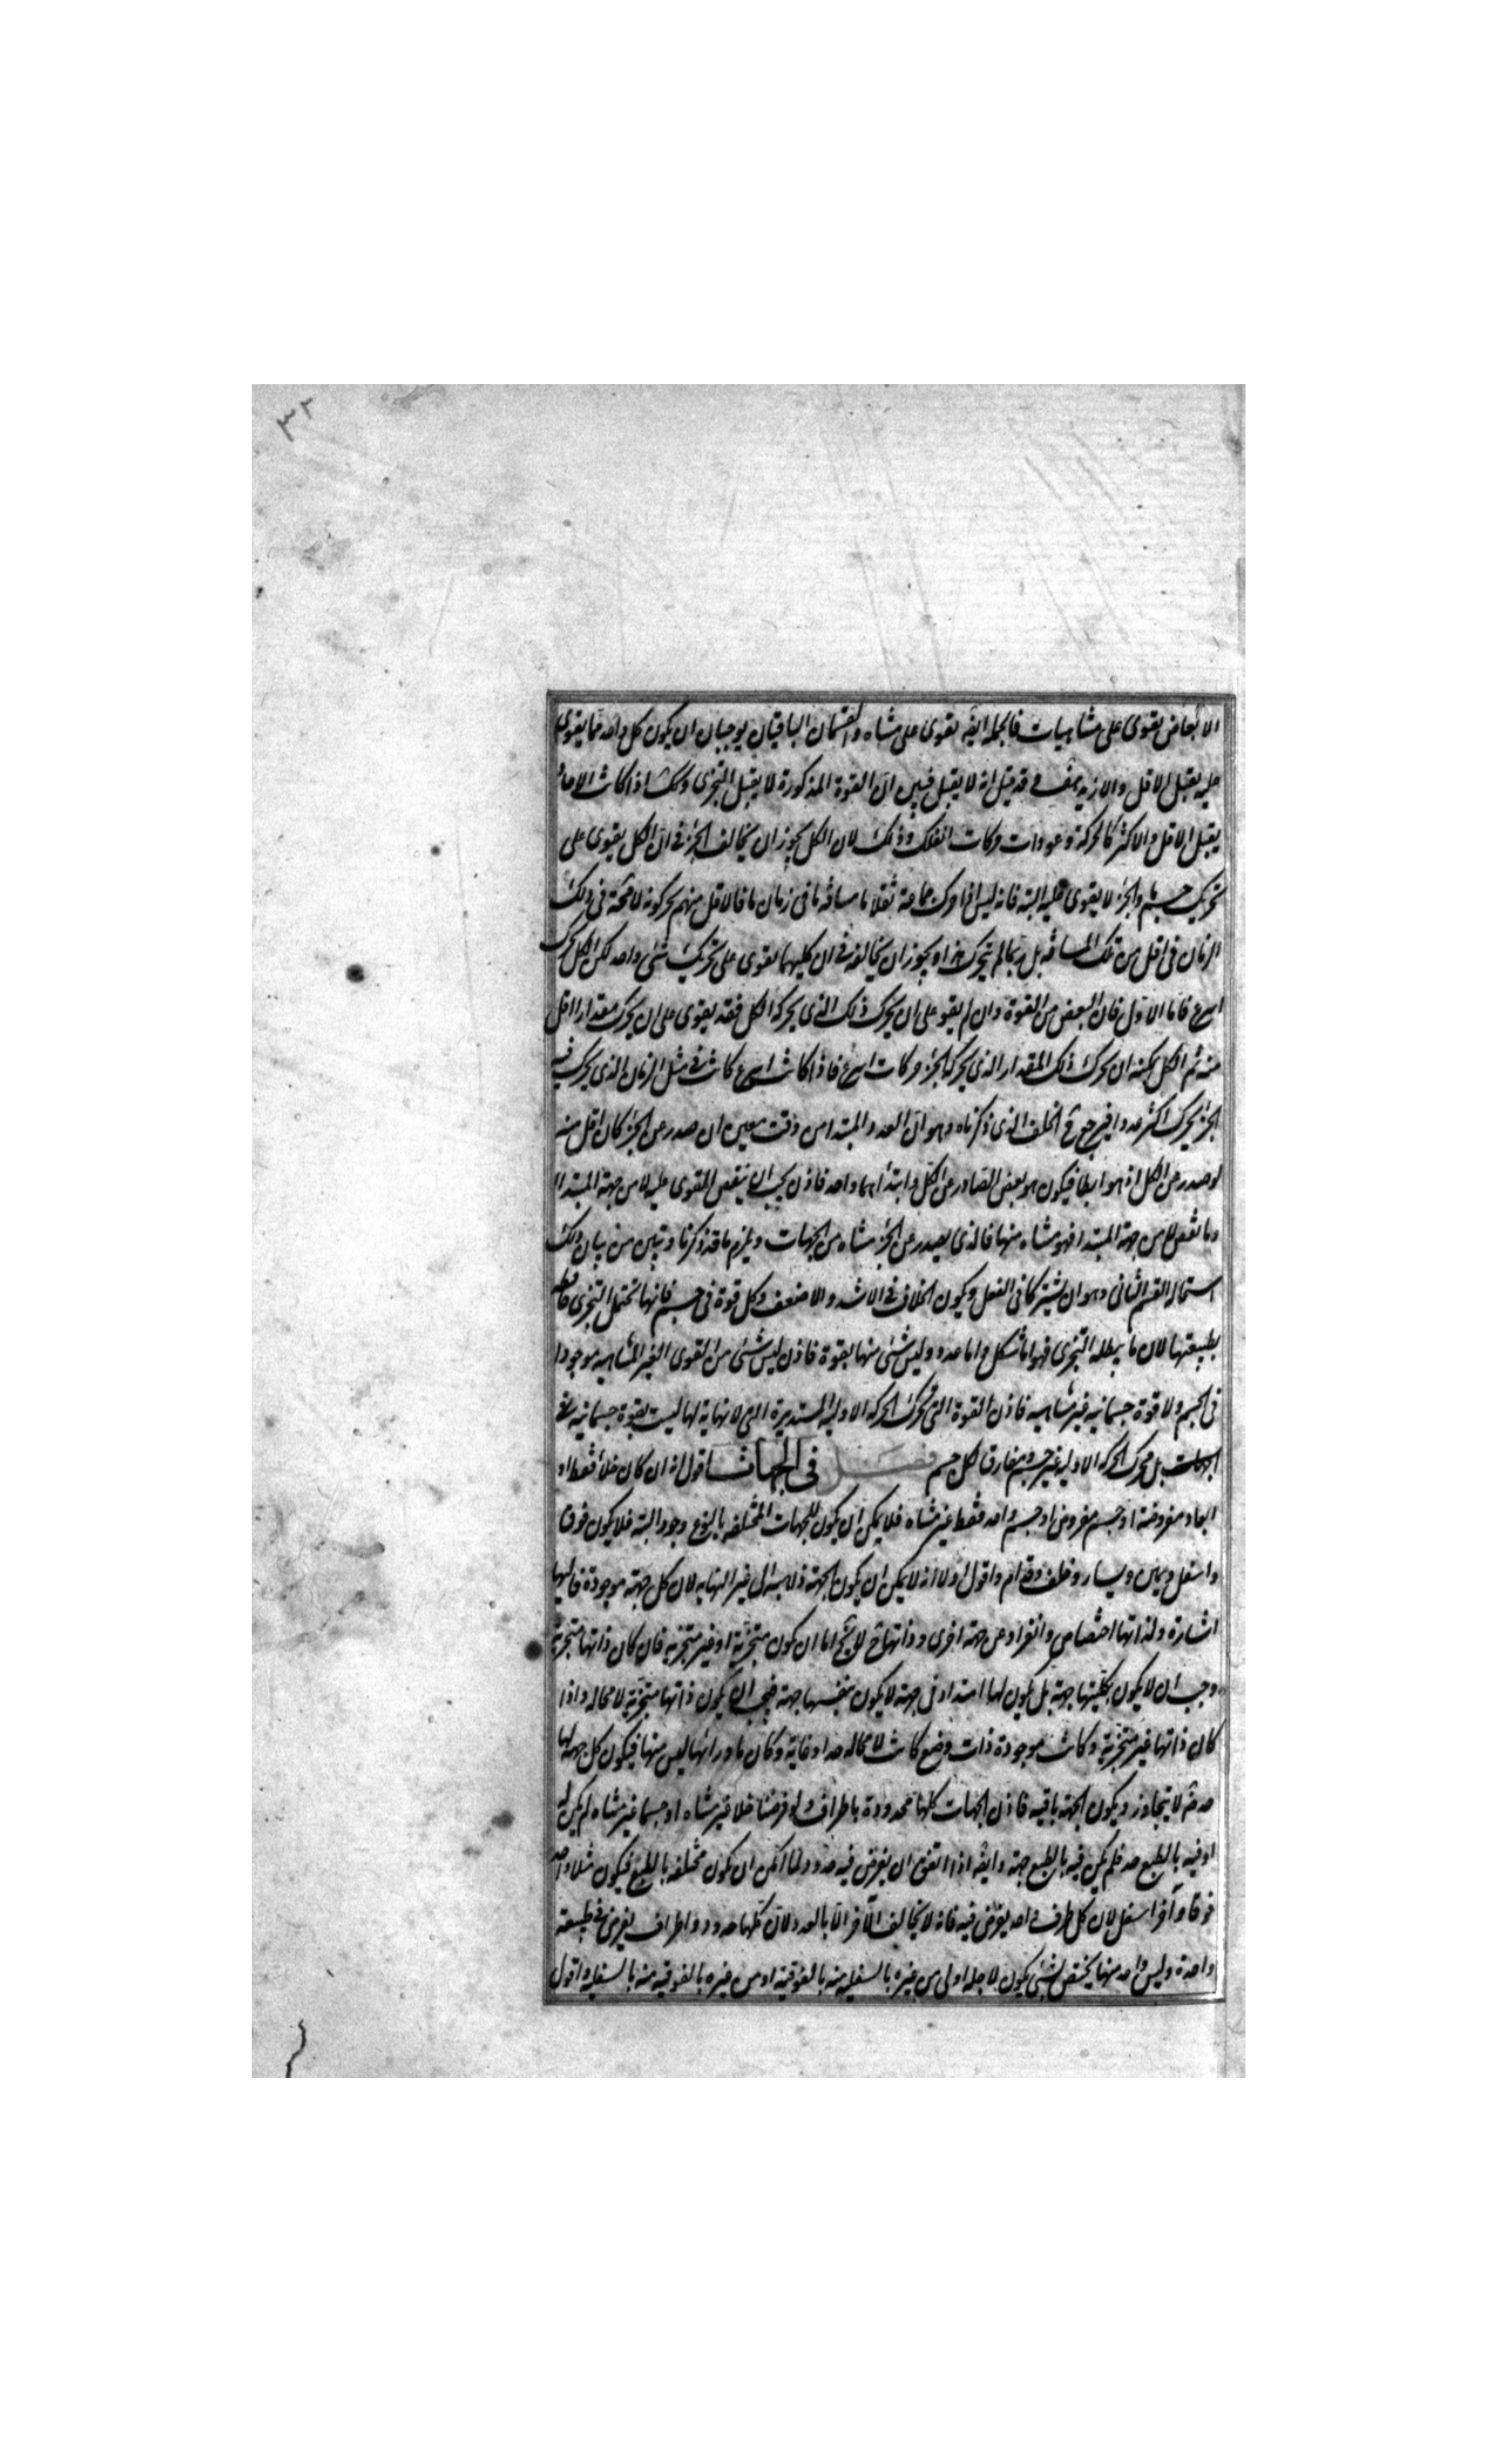 ٣٢
الابعاض يقوى على متناهيات فالجملة ايضه تقوى على متناه والقسمان الباقيان يوجبان ان يكون كل واحد مما يقوى
عليه يقبل الاقل والازيد هف وقد قيل انه لا يقبل فبين ان القوة المذكورة لا يقبل التجزى وكك اذا كانت الاحاد
يقبل الاقل والاكثر كالحركة وعودات حركات الفلك وذلك لان الكل يجوز ان يخالف الجزء فى ان الكل يقوى على
تحريك جسم والجزء لا يقوى عليه البتة فانه ليس اذا حرك جماعة ثقلا ما مسافة ما فى زمان ما فالاقل منهم يحركونه لا محة فى ذلك
الزمان فى اقل من تلك المسافة بل ربما لم يتحرك هذا ويجوز ان يخالفه فى ان كليهما يقوى على تحريك شئ واحد لكن الكل يحرك
اسرع فاما الاول فان البعض من القوة وان لم يقو على ان يحرك ذلك الذى يحركه الكل فقد يقوى على ان يحرك مقدارا اقل
منه ثم الكل يمكنه ان يحرك ذلك المقدار الذى يحركه الجزء حركات اسرع فاذا كانت اسرع كانت فى مثل الزمان الذى يحرك فيه
الجزء يحرك اكثر عددا فيرجع ح الخلف الذى ذكرناه وهو ان العدد المبتدا من وقت معين ان صدر عن الجزء كان اقل منه
لو صدر عن الكل اذ هو ابطا فيكون هو بعض الصادر عن الكل وابتداهما واحد فاذن يجب ان ينقص المقوى عليه لا من جهة المبتدا
وما نقص لا من جهة المبتدا فهو متناه منها فالذى يصدر عن الجزء متناه من الجهات ويلزم ما قد ذكرنا وتبين من بيان ذلك
استحالة القسم الثانى وهو ان يشتركا فى الفعل ويكون الخلاف فى الاشد والاضعف وكل قوة فى جسم فانها تحتمل التجزى
بطبيعتها لان ما يبطله التجزى فهو اما شكل واما عدد وليس شئ منها بقوة فاذن ليس شئ من القوى الغير المتناهيه موجودا
فى الجسم ولا قوة جسمانيه غير متناهيه فاذن القوة التى تحرك الحركه الاوليه المستديرة التى لا نهاية لها ليست بقوة جسمانيه
بل محرك الحركه الاوليه غير جسم ومفارق لكل جسم فصل فى الجهات اقول انه ان كان خلأ فقط او
ابعاد مفروضة او جسم مفروض او جسم واحد فقط غير متناه فلا يمكن ان يكون للجهات المختلفه بالنوع وجود البته فلا يكون فوق
واسفل ويمين ويسار وخلف وقدام واقول اولا انه لا يمكن ان يكون الجهة ذاهبه الى غير النهايه لان كل جهة موجودة فاليها
اشارة ولذاتها اختصاص وانفراد عن جهة اخرى وذاتها ح لا يخ اما ان يكون متجزية او غير متجزيه فان كان ذاتها متجزية
وجب ان لا يكون بكليتها جهة بل يكون لها امتداد فى جهة لا يكون بنفسها جهة فيجب ان لا يكون ذاتها متجزية لا محاله واذا
كان ذاتها غير متجزية وكانت موجودة ذات وضع كانت لا محاله حدا وغاية وكان ما ورائها ليس منها فيكون كل جهة لها
حد ثم لا يتجاوز ويكون الجهة باقيه فاذن الجهات كلها محدودة باطراف ولو فرضنا خلا غير متناه او جسما غير متناه لم يكن له
او فيه بالطبع حد فلم يكن فيه بالطبع جهة وايضه اذا اتفق ان يفرض فيه حدود لما امكن ان يكون مختلفه بالطبع فيكون مثلا واحد
فوقا وآخر اسفل لان كل طرف واحد يفرض فيه فانه لا يخالف الآخر الا بالعدد لان كلها حدود واطراف يفرض فى طبيعة
واحدة وليس واحد منها يختص بشئ يكون لاجله اولى من غيره بالسفليه منه بالفوقية او من غيره بالفوقيه منه بالسفليه واقول